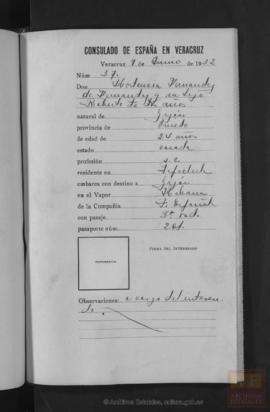 CONSULADO DE ESPAÑA EN VERACRUZ
Veracruz 9 de Junio de 1932
Núm 37.
Don Hortensia Fernandez
de Fernandez y su hijo
Roberto
natural de Gijón
provincia de Oviedo
de edad de 25 años
estado casada
profesión s.c.
residente en
embarca con destino a Gijón
en el Vapor Habana
de la Compañía T. Española
con pasaje 3ª
pasaporte núm. 261
FOTOGRAFÍA
FIRMA DEL INTERESADO
Observaciones: a cargo del interesa
do
© Archivos Estatales, cultura.gob.es